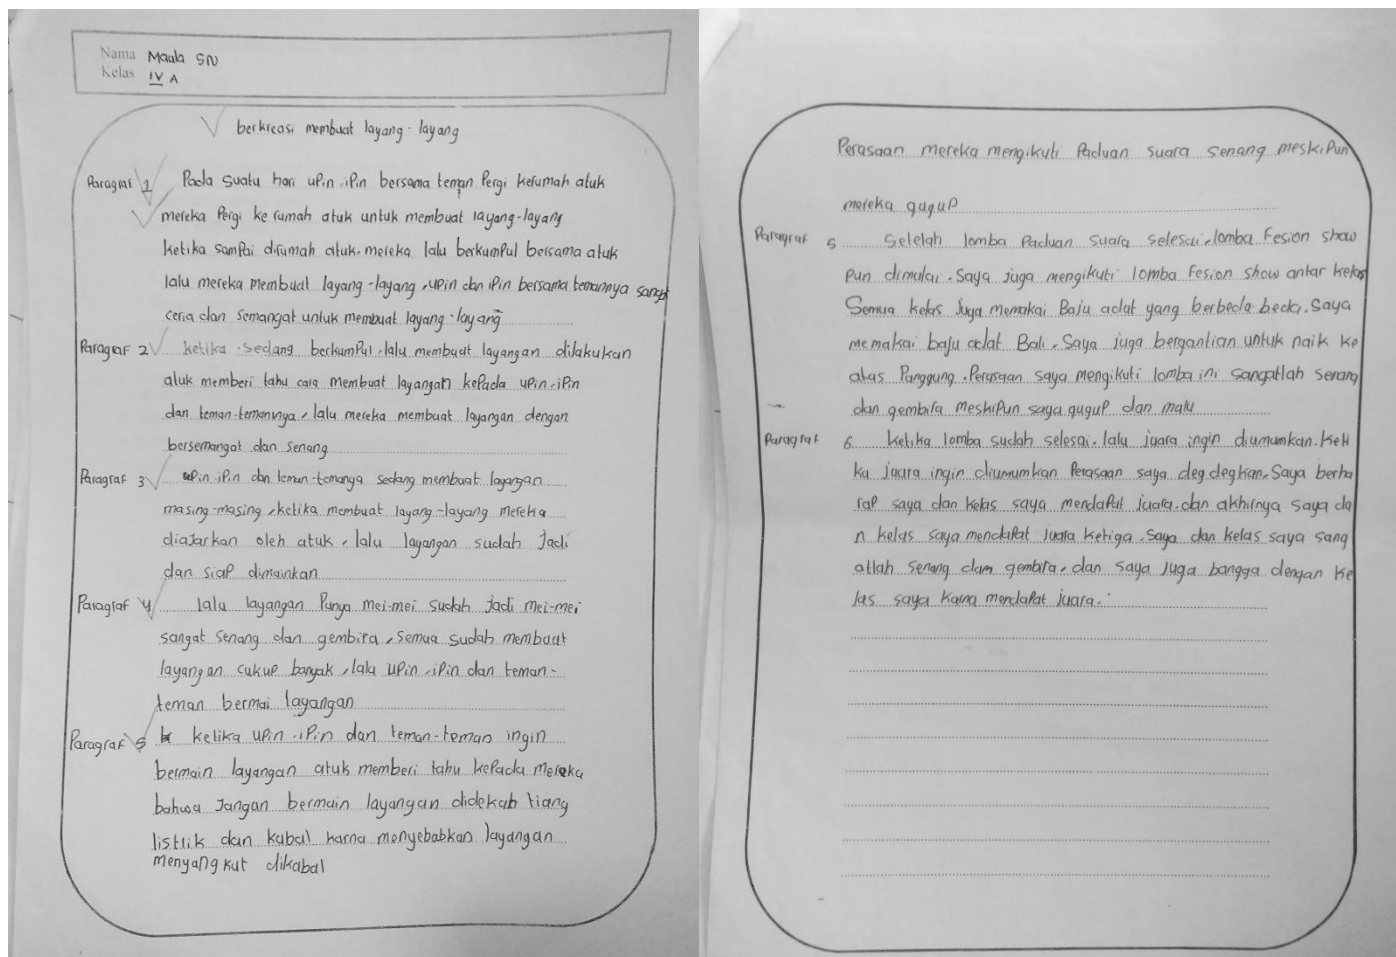 Nama Maula SN
Kelas IV A
berkreasi membuat layang-layang
Paragraf 1 Pada suatu hari upin.ipin bersama teman Pergi kerumah atuk
mereka Pergi ke rumah atuk untuk membuat layang-layang
ketika sampai dirumah atuk. mereka lalu berkumpul bersama atuk
lalu mereka membuat layang-layang, upin dan ipin bersama temannya sangat
ceria dan semangat untuk membuat layang-layang
Paragraf 2 ketika sedang berkumpul. lalu membuat layangan dilakukan
atuk memberi tahu cara membuat layangan kepada upin.ipin
dan teman-temannya, lalu mereka membuat layangan dengan
bersemangat dan senang
Paragraf 3 upin.ipin dan teman-temanya sedang membuat layangan
masing-masing, ketika membuat layang-layang mereka
diajarkan oleh atuk, lalu layangan sudah jadi
dan siap dimainkan
Paragraf 4 lalu layangan Punya mei-mei sudah jadi mei-mei
sangat senang dan gembira, semua sudah membuat
layangan cukup banyak, lalu upin.ipin dan teman-
teman bermai layangan
Paragraf 5 ketika upin.ipin dan teman-teman ingin
bermain layangan atuk memberi tahu kepada mereka
bahwa jangan bermain layangan didekab tiang
listrik dan kabal karna menyebabkan layangan
menyangkut dikabal
Perasaan mereka mengikuti Paduan suara senang meskipun
mereka gugup
Paragraf 5 Setelah lomba Paduan suara selesai, lomba Fesion show
Pun dimulai. Saya juga mengikuti lomba Fesion show antar kelas
Semua kelas juga memakai Baju adat yang berbeda beda. Saya
memakai baju adat Bali. Saya juga bergantian untuk naik ke
atas Panggung. Perasaan saya mengikuti lomba ini sangatlah senang
dan gembira meskipun saya gugup dan malu
Paragraf 6 ketika lomba sudah selesai. lalu juara ingin diumumkan. keti
ka juara ingin diumumkan Perasaan saya deg degkan, Saya berha
rap saya dan kelas saya mendapat juara. dan akhirnya saya da
n kelas saya mendapat juara ketiga. Saya dan kelas saya sang
atlah senang dan gembira, dan saya juga bangga dengan ke
las saya karna mendapat juara.